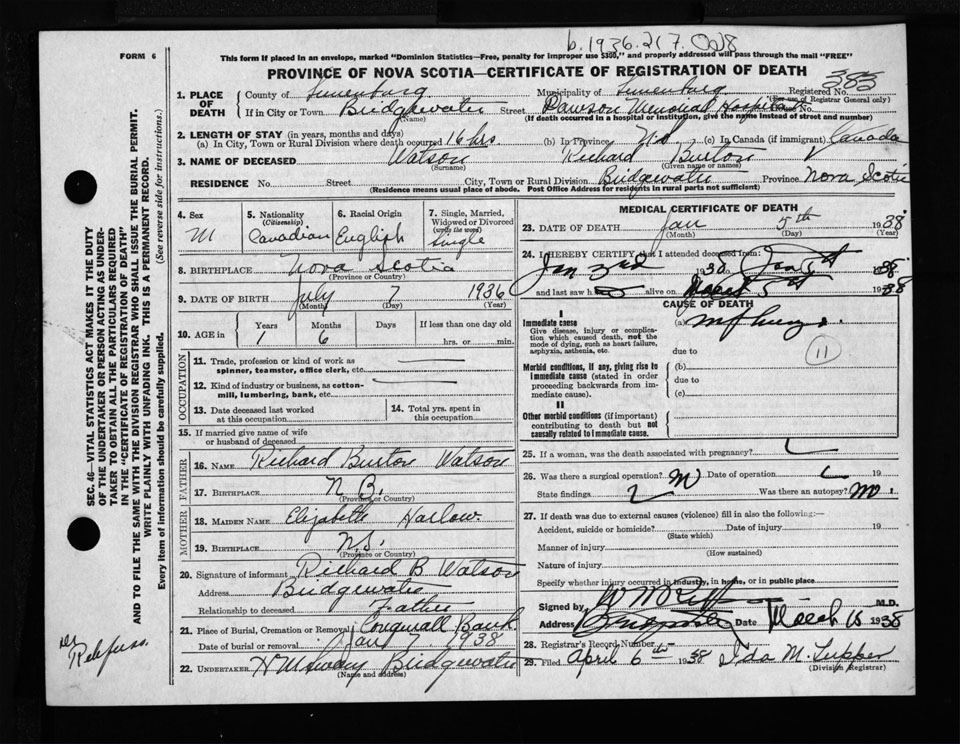 b.1936.217.028
FORM 6
This form if placed in an envelope, marked "Dominion Statistics—Free, penalty for improper use $300," and properly addressed will pass through the mail "FREE"
PROVINCE OF NOVA SCOTIA—CERTIFICATE OF REGISTRATION OF DEATH
385
1. PLACE OF DEATH
County of Lunenburg Municipality of Lunenburg Registered No.
(For use of Registrar General only)
If in City or Town Bridgewater Street Dawson Memorial Hospital House No.
(Name) (If death occurred in a hospital or institution, give the name instead of street and number)
2. LENGTH OF STAY (in years, months and days)
(a) In City, Town or Rural Division where death occurred 16 hrs. (b) In Province (c) In Canada (if immigrant) Canada
3. NAME OF DECEASED Watson Richard Burton
(Surname) (Given name or names)
RESIDENCE No. Street City, Town or Rural Division Bridgewater Province Nova Scotia
(Residence means usual place of abode. Post Office Address for residents in rural parts not sufficient)
SEC. 46—VITAL STATISTICS ACT MAKES IT THE DUTY
OF THE UNDERTAKER OR PERSON ACTING AS UNDER-
TAKER TO OBTAIN ALL THE PARTICULARS REQUIRED
IN THE "CERTIFICATE OF REGISTRATION OF DEATH"
AND TO FILE THE SAME WITH THE DIVISION REGISTRAR WHO SHALL ISSUE THE BURIAL PERMIT.
WRITE PLAINLY WITH UNFADING INK. THIS IS A PERMANENT RECORD.
Every item of information should be carefully supplied. (See reverse side for instructions.)
4. Sex
M
5. Nationality
(Citizenship)
Canadian
6. Racial Origin
English
7. Single, Married, Widowed or Divorced
(write the word)
Single
8. BIRTHPLACE Nova Scotia
(Province or Country)
9. DATE OF BIRTH July 7 1936
(Month) (Day) (Year)
10. AGE in Years Months Days If less than one day old
1 6 hrs. or min.
OCCUPATION
11. Trade, profession or kind of work as
spinner, teamster, office clerk, etc.
12. Kind of industry or business, as cotton-
mill, lumbering, bank, etc.
13. Date deceased last worked
at this occupation
14. Total yrs. spent in
this occupation
15. If married give name of wife
or husband of deceased
FATHER
16. NAME Richard Burton Watson
17. BIRTHPLACE N B.
(Province or Country)
MOTHER
18. MAIDEN NAME Elizabeth Harlow.
19. BIRTHPLACE N.S.
(Province or Country)
20. Signature of informant Richard B Watson
Address Bridgewater
Relationship to deceased Father
21. Place of Burial, Cremation or Removal Bank
Date of burial or removal Jany 7 1938
22. UNDERTAKER Bridgewater
(Name and address)
MEDICAL CERTIFICATE OF DEATH
23. DATE OF DEATH Jan 5th 1938
(Month) (Day) (Year)
24. I HEREBY CERTIFY that I attended deceased from:
Jan 3rd 1938 Jan 5th 1938
and last saw h alive on 5th 1938
CAUSE OF DEATH
I
Immediate cause
Give disease, injury or complica-
tion which caused death, not the
mode of dying, such as heart failure,
asphyxia, asthenia, etc.
(a)
due to
11
Morbid conditions, if any, giving rise to
immediate cause (stated in order
proceeding backwards from im-
mediate cause).
(b)
due to
(c)
II
Other morbid conditions (if important)
contributing to death but not
causally related to immediate cause.
25. If a woman, was the death associated with pregnancy?
26. Was there a surgical operation? Date of operation 19
State findings Was there an autopsy? No.
27. If death was due to external causes (violence) fill in also the following:—
Accident, suicide or homicide? Date of injury 19
(State which)
Manner of injury
(How sustained)
Nature of injury
Specify whether injury occurred in industry, in home, or in public place
Signed by M.D.
Address Date March 15 1938
28. Registrar's Record Number
29. Filed April 6th 1938 Ida M. Tupper
(Division Registrar)